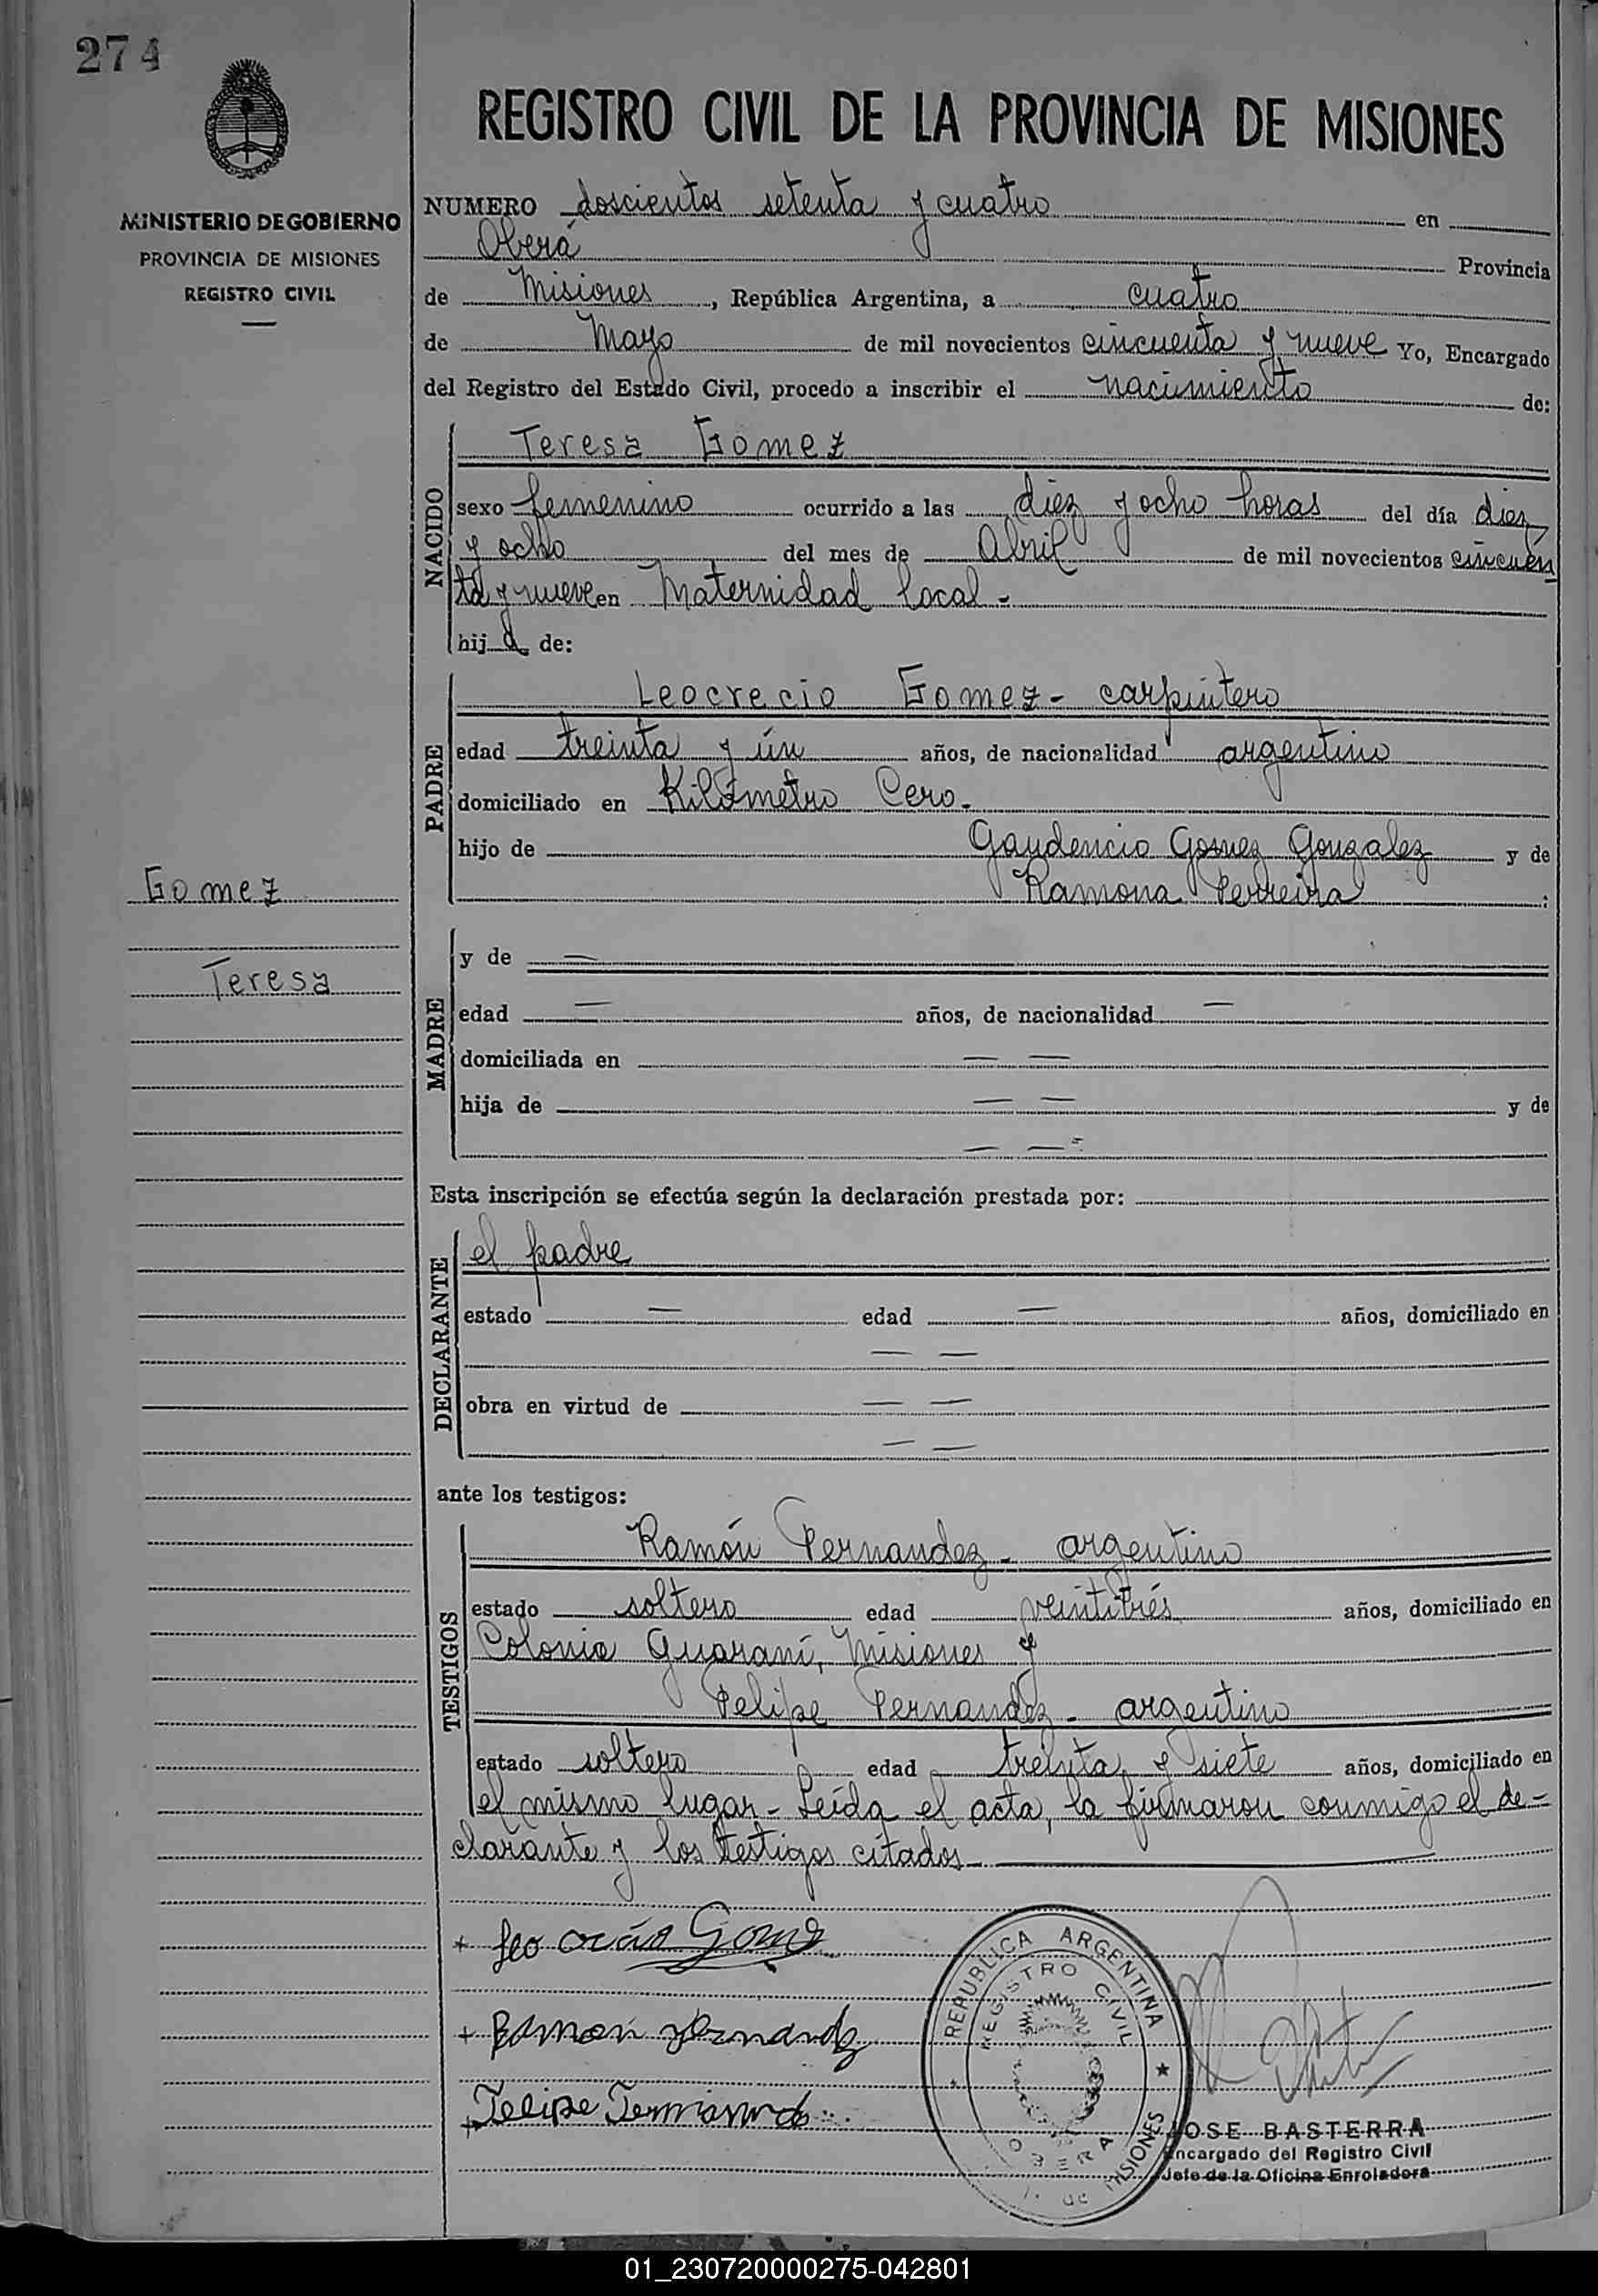 274
MINISTERIO DE GOBIERNO
PROVINCIA DE MISIONES
REGISTRO CIVIL
Gomez
Teresa
REGISTRO CIVIL DE LA PROVINCIA DE MISIONES
NUMERO doscientos setenta y cuatro en
Oberá Provincia
de Misiones, República Argentina, a cuatro
de Mayo de mil novecientos cincuenta y nueve Yo, Encargado
del Registro del Estado Civil, procedo a inscribir el nacimiento de:
NACIDO
Teresa Gomez
sexo femenino ocurrido a las diez y ocho horas del día diez
y ocho del mes de Abril de mil novecientos cincuen
ta y nueve en Maternidad local -
hija de:
PADRE
Leocrecio Gomez - carpintero
edad treinta y ún años, de nacionalidad argentino
domiciliado en Kilómetro Cero.
hijo de Gaudencio Gomez Gonzalez y de
Ramona Ferreira :
MADRE
y de —
edad — años, de nacionalidad —
domiciliada en — —
hija de — — y de
— —
Esta inscripción se efectúa según la declaración prestada por:
DECLARANTE
el padre
estado — edad — años, domiciliado en
— —
obra en virtud de — —
— —
ante los testigos:
TESTIGOS
Ramón Fernandez - argentino
estado soltero edad veintitrés años, domiciliado en
Colonia Guaraní, Misiones y
Felipe Fernandez - argentino
estado soltero edad treinta y siete años, domiciliado en
el mismo lugar - Leída el acta, la firmaron conmigo el de-
clarante y los testigos citados
+ Leo Gomez
+ Ramon Fernandez
+ Felipe
REPUBLICA ARGENTINA
REGISTRO CIVIL
OBERA
MISIONES
JOSE BASTERRA
Encargado del Registro Civil
Jefe de la Oficina Enroladora
01_230720000275-042801